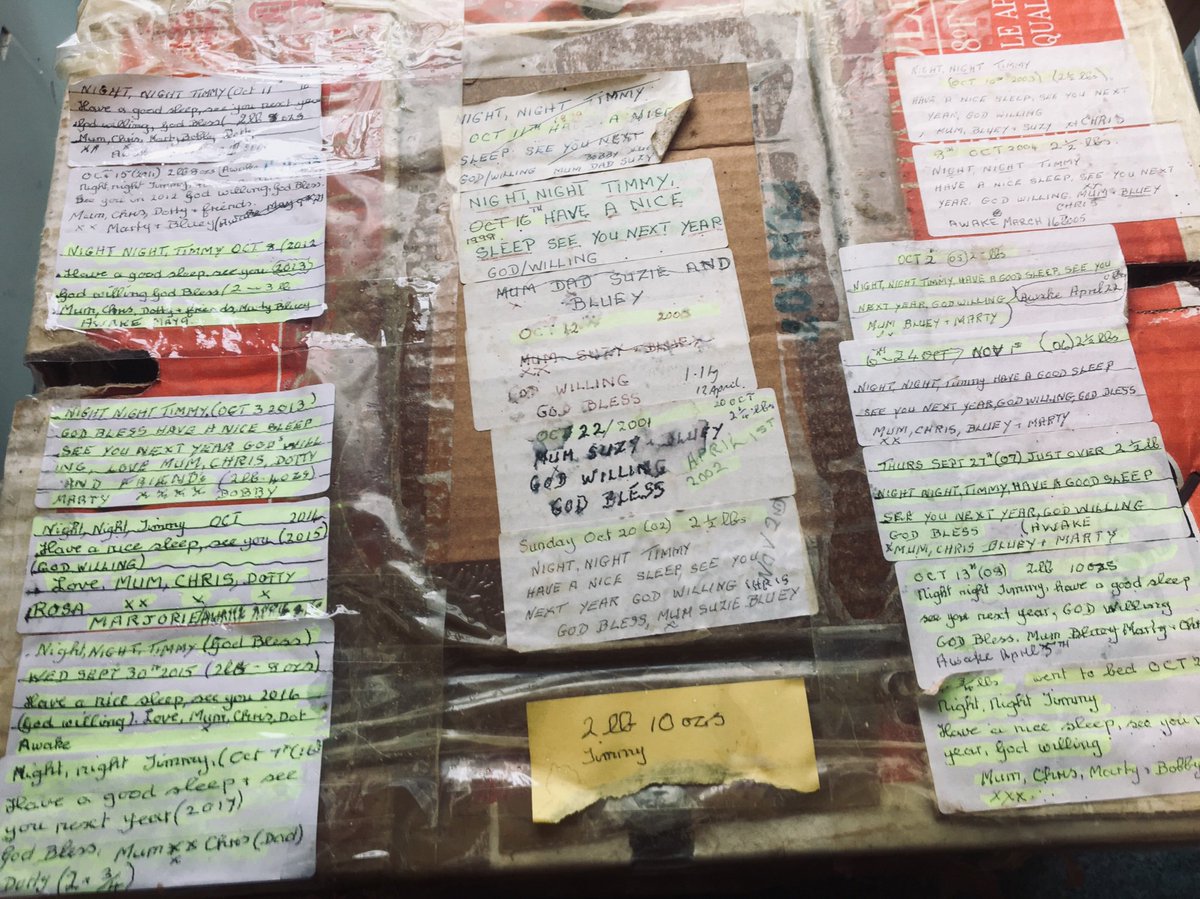 NIGHT, NIGHT TIMMY (Oct 11
Have a good sleep, see you next year
God willing, God Bless
Mum, Chris, Marty, Bobby Dotty
xx
OCT 15 (2011) 2lb 8ozs (Awake
Night, night Timmy,
See you in 2012 God willing, God Bless.
Mum, Chris, Dotty + friends.
xx Marty + Bluey (Awake May
NIGHT NIGHT, TIMMY OCT 8 (2012
Have a good sleep, see you (2013)
God willing God Bless (2 - 3 lb
Mum, Chris, Dotty + friends, Marty Bluey
AWAKE MAY 9.
NIGHT NIGHT TIMMY, (OCT 3 2013)
GOD BLESS HAVE A NICE SLEEP
SEE YOU NEXT YEAR GOD, WILL
ING, LOVE MUM, CHRIS, DOTTY
AND FRIENDS (2lb-4ozs)
MARTY xxxx BOBBY
Night, Night, Timmy OCT 2014
Have a nice sleep, see you (2015)
(GOD WILLING)
Love, MUM, CHRIS, DOTTY
ROSA xx x x
MARJORIE/AWAKE APRIL
Night, NIGHT, TIMMY (God Bless)
WED SEPT 30TH 2015 (2lb - 8ozs)
Have a nice sleep, see you 2016
(God willing). Love, Mum, Chris, Dot
Awake
Night, night Timmy, (Oct 7th (16)
Have a good sleep + see
you next year (2017)
God Bless, Mum xx Chris (Dad)
x
Dotty (2 - 3/4)
NIGHT, NIGHT TIMMY
OCT 11TH HAVE A NICE
SLEEP. SEE YOU NEXT
BOBBY
GOD/WILLING MUM DAD SUZY
NIGHT, NIGHT TIMMY,
OCT 16TH HAVE A NICE
1999
SLEEP SEE YOU NEXT YEAR
GOD/WILLING
MUM DAD SUZIE AND
BLUEY
OCT 12TH
MUM SUZY + BLUEY
GOD WILLING 1.1 kg
GOD BLESS 12 April.
20 OCT
OCT 22/2001 2 1/4 lbs
MUM SUZY + BLUEY
GOD WILLING APRIL 1ST
GOD BLESS 2002
Sunday Oct 20 (02) 2 1/2 lbs
NIGHT, NIGHT TIMMY
HAVE A NICE SLEEP SEE YOU
NEXT YEAR GOD WILLING CHRIS
GOD BLESS, MUM SUZIE BLUEY
x
2 lb 10 ozs
Timmy
8° OF
LE AP
QUAL
NIGHT, NIGHT TIMMY
(OCT 10TH 2003) (2 1/2 lbs).
HAVE A NICE SLEEP, SEE YOU NEXT
YEAR, GOD WILLING
MUM, BLUEY + SUZY + CHRIS
9TH OCT 2004 2 1/2 lbs.
NIGHT, NIGHT TIMMY.
HAVE A NICE SLEEP, SEE YOU NEXT
YEAR, GOD WILLING, MUM + BLUEY
CHRIS
AWAKE MARCH 16 2005
OCT 2 (05) 2 lbs
NIGHT, NIGHT, TIMMY, HAVE A GOOD SLEEP, SEE YOU
NEXT YEAR, GOD WILLING (Awake April 22
MUM BLUEY + MARTY)
24 OCT NOV 1ST (06) 2 1/2 lbs
NIGHT, NIGHT, Timmy HAVE A GOOD SLEEP
SEE YOU NEXT YEAR, GOD WILLING, GOD BLESS
MUM, CHRIS, BLUEY + MARTY
xx
THURS SEPT 27TH (07) JUST OVER 2 1/2 lb
NIGHT NIGHT, TIMMY, HAVE A GOOD SLEEP
SEE YOU NEXT YEAR, GOD WILLING
GOD BLESS (AWAKE
x MUM, CHRIS BLUEY + MARTY
OCT 13TH (09) 2lb 10 ozs
Night night Timmy, have a good sleep
see you next year, GOD Willing
GOD Bless. Mum Bluey Marty + Chris
Awake April 5TH
lbs went to bed OCT
Night, Night Timmy
Have a nice sleep, see you
year, God willing
Mum, Chris, Marty + Bobby
xxx